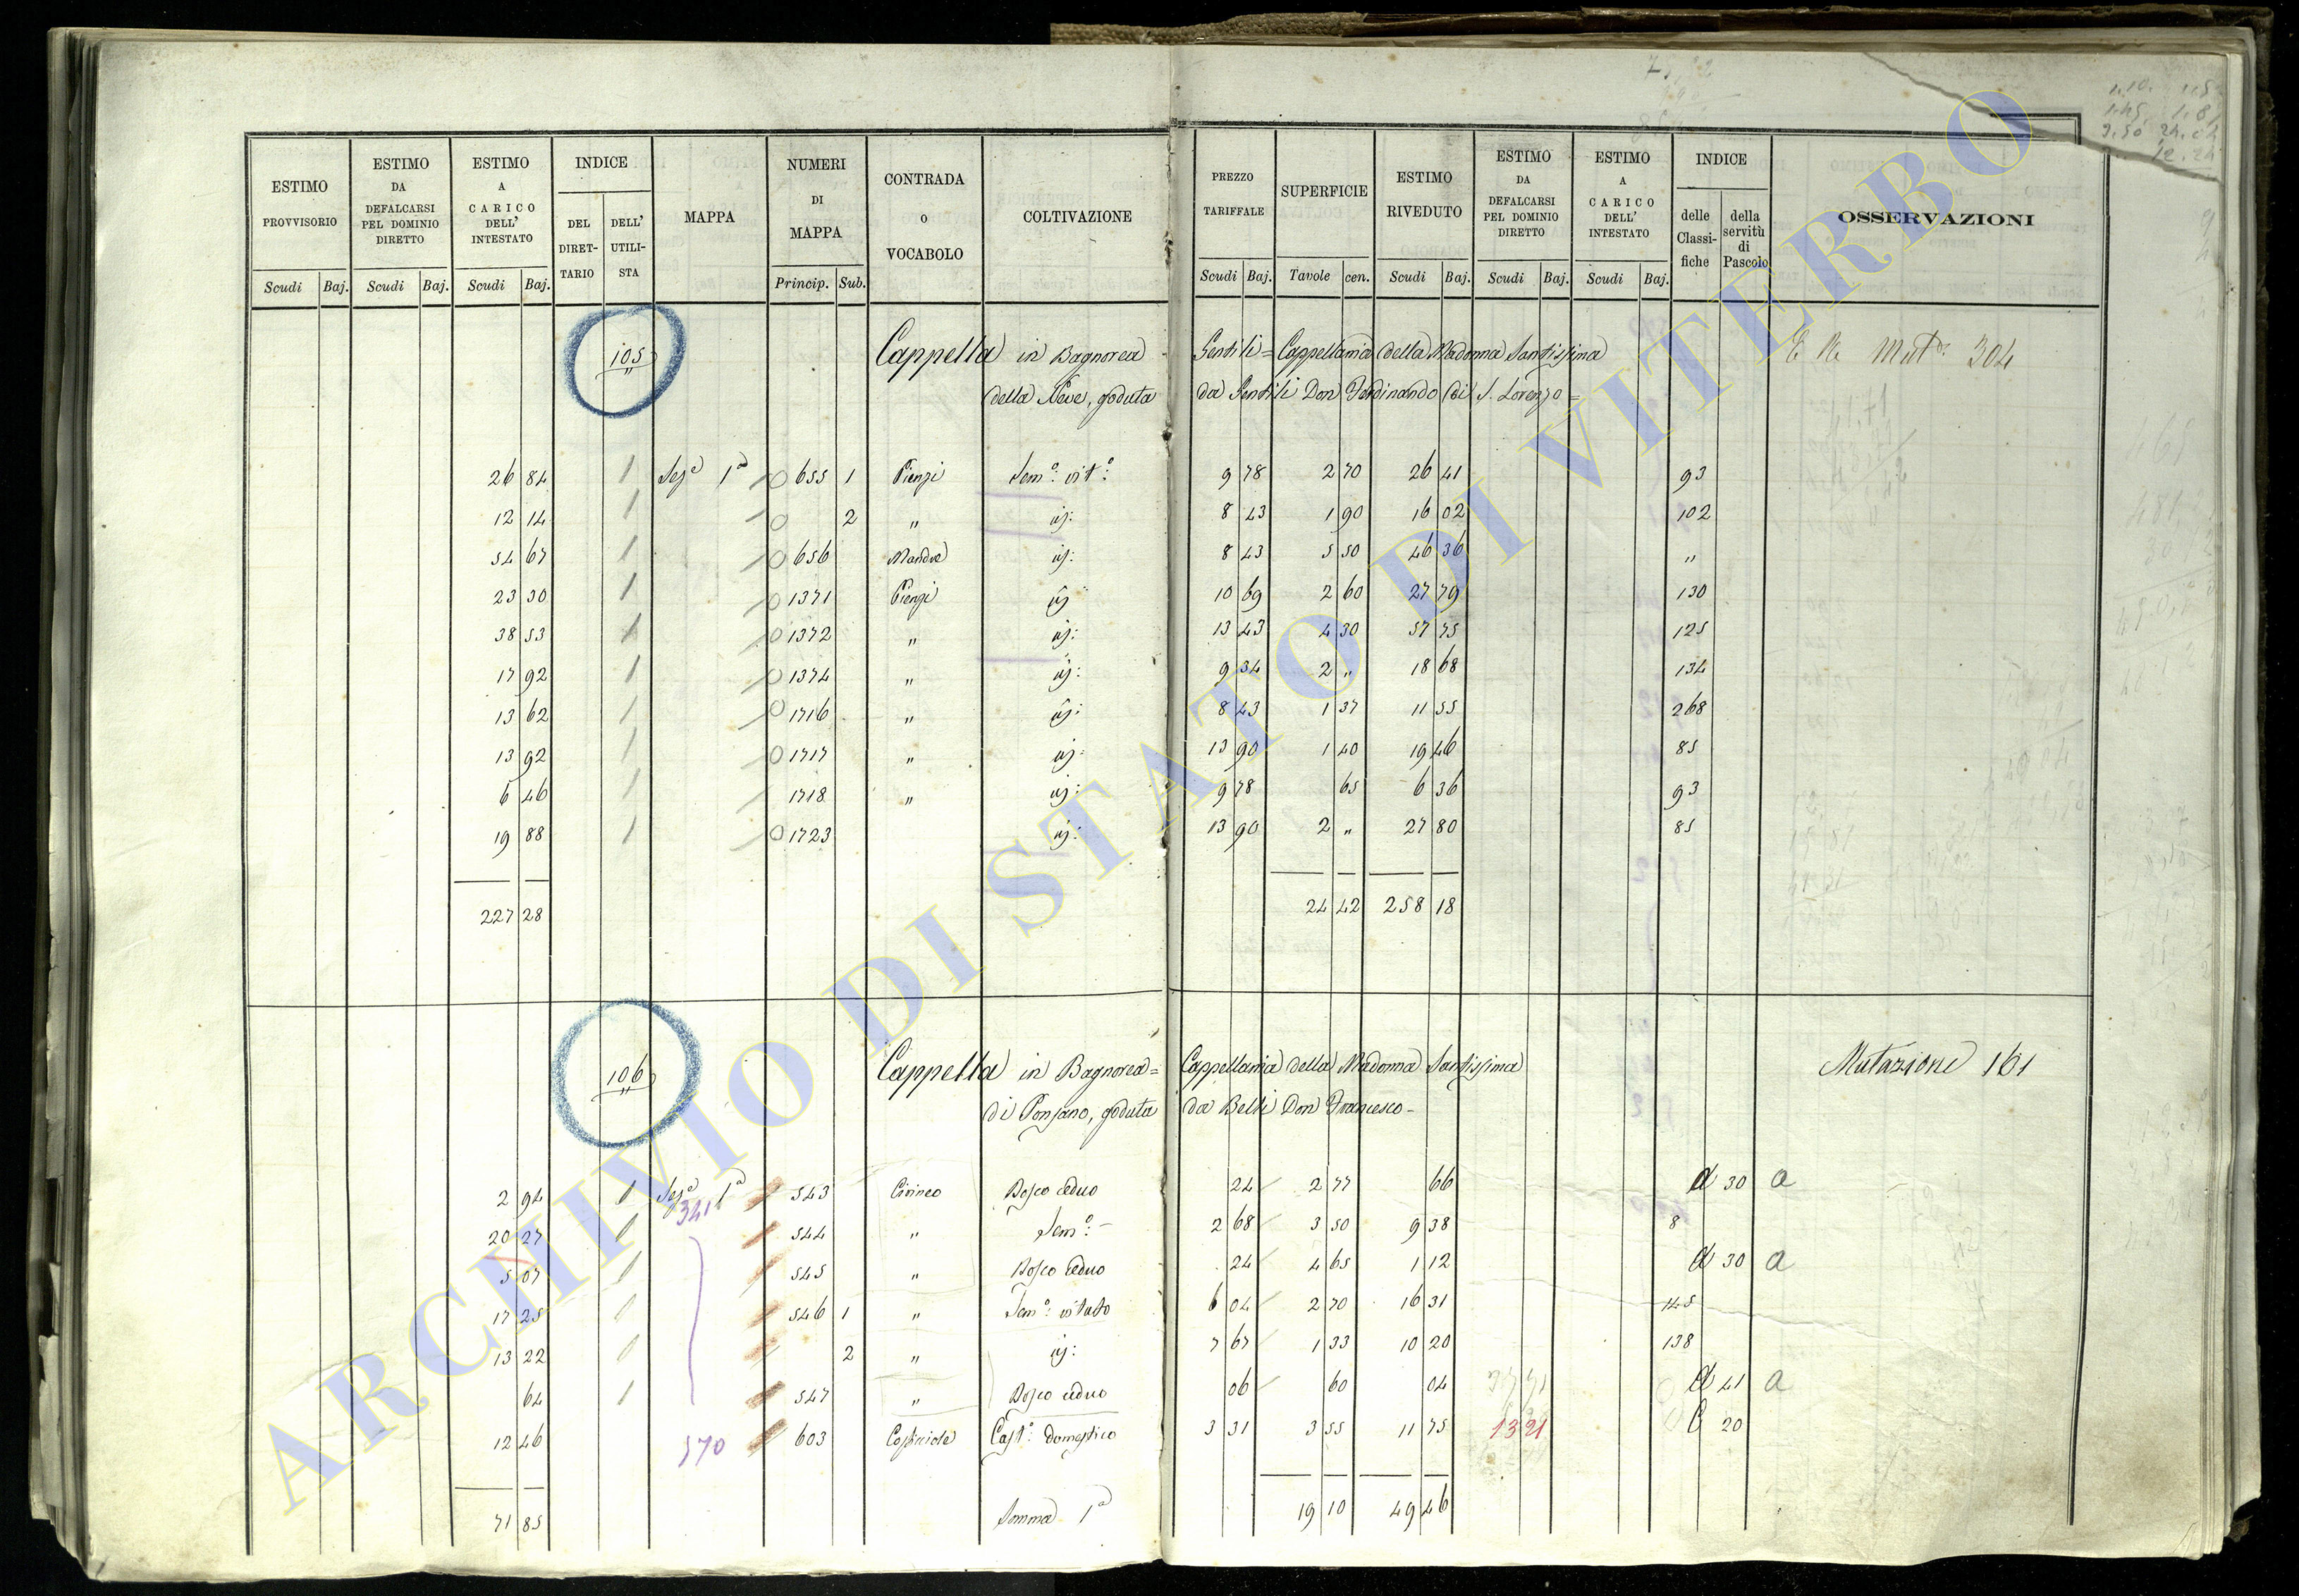 ESTIMO PROVVISORIO Scudi Baj.
ESTIMO DA DEFALCARSI PEL DOMINIO DIRETTO Scudi Baj.
ESTIMO A CARICO DELL' INTESTATO Scudi Baj.
INDICE DEL DIRET-TARIO DELL' UTILI-STA
MAPPA
NUMERI DI MAPPA Princip. Sub.
CONTRADA O VOCABOLO
COLTIVAZIONE
PREZZO TARIFFALE Scudi Baj.
SUPERFICIE Tavole cen.
ESTIMO RIVEDUTO Scudi Baj.
ESTIMO DA DEFALCARSI PEL DOMINIO DIRETTO Scudi Baj.
ESTIMO A CARICO DELL' INTESTATO Scudi Baj.
INDICE delle Classi-fiche della servitù di Pascolo
OSSERVAZIONI
105 Cappella in Bagnorea Gentili = Cappellania della Madonna Santissima Mut.e 304
della Neve, goduta da Gentili Don Ferdinando di S. Lorenzo =
26 84 1 Sez.e 1a 655 1 Pienzi Sem.o: vit.o: 9 78 2 70 26 41 93
12 14 1 2 " id: 8 43 1 90 16 02 102
54 67 1 656 id: 8 43 5 50 46 36 "
23 30 1 1371 Pienzi id 10 69 2 60 27 79 130
38 53 1 1372 " id: 13 43 4 30 57 75 125
17 92 1 1374 " id: 9 34 2 " 18 68 134
13 62 1 1716 " id: 8 43 1 37 11 55 268
13 92 1 1717 " id: 13 90 1 40 19 46 85
6 46 1 1718 " id: 9 78 65 6 36 93
19 88 1 1723 id: 13 90 2 " 27 80 85
227 28 24 42 258 18
106 Cappella in Bagnorea = Cappellania della Madonna Santissima Mutazione 161
di Ponzano, goduta da Belli Don Francesco -
2 94 1 Sez.e 1a 543 Cirineo Bosco ceduo 24 2 77 66 d 30 a
341
20 27 544 " Sem.o: - 2 68 3 50 9 38 8
5 07 545 " Bosco ceduo 24 4 65 1 12 d 30 a
17 25 546 1 " Sem.o: vitato 6 04 2 70 16 31 145
13 22 2 " id: 7 67 1 33 10 20 138
64 1 547 " Bosco ceduo 06 60 04 d 41 a
12 46 570 603 Cast.o: domestico 3 31 3 55 11 75 13 21 C 20
71 85 Somma 1a 19 10 49 46
ARCHIVIO DI STATO DI VITERBO